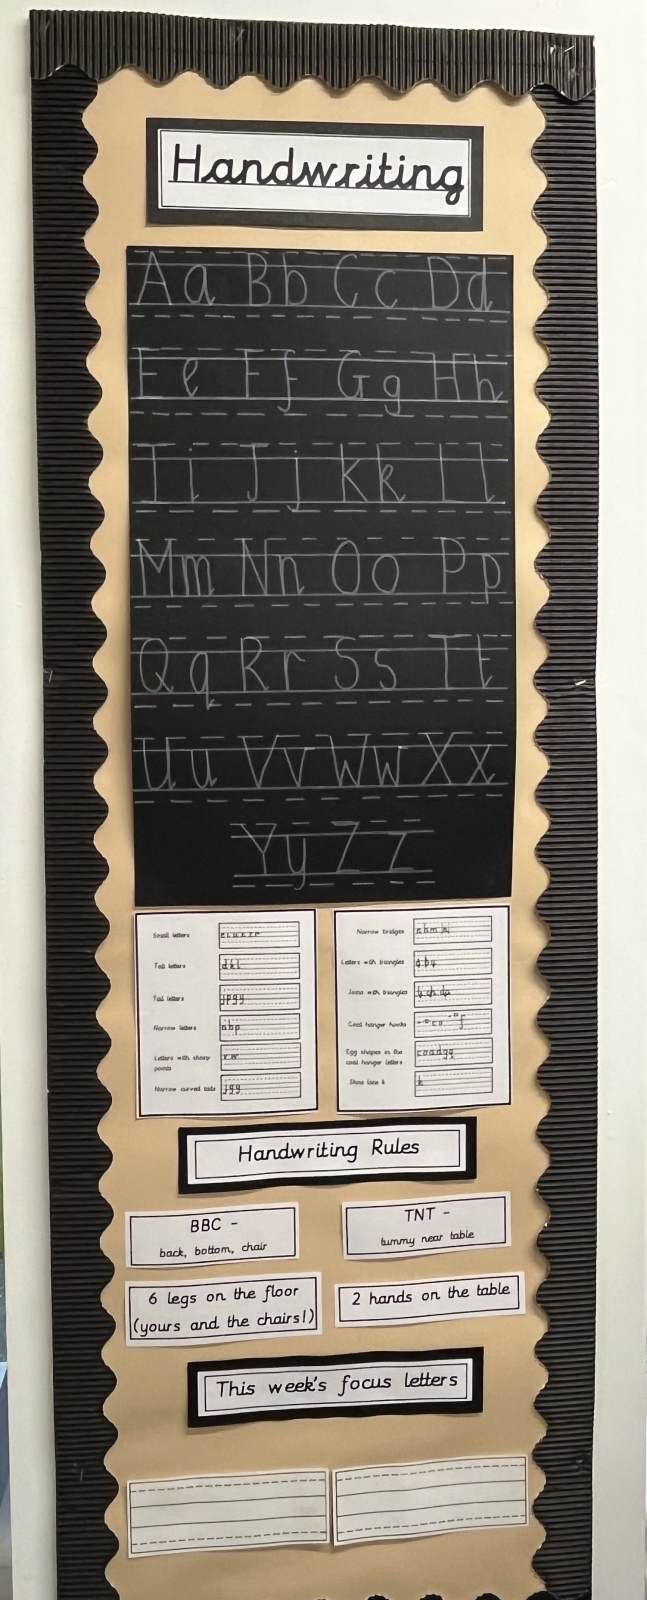 Handwriting
Aa Bb Cc Dd
Ee Ff Gg Hh
Ii Jj Kk Ll
Mm Nn Oo Pp
Qq Rr Ss Tt
Uu Vv Ww Xx
Yy Zz
Small letters
Tall letters dkl
Tail letters jpgy
Narrow letters nbp
Letters with sharp points vw
Narrow curved tails jgy
Narrow bridges
Letters with triangles
Joins with triangles
Coat hanger hooks
Egg shapes in the coat hanger letters coadgq
Shoe lace k k
Handwriting Rules
BBC -
back, bottom, chair
TNT -
tummy near table
6 legs on the floor
(yours and the chairs!)
2 hands on the table
This week's focus letters